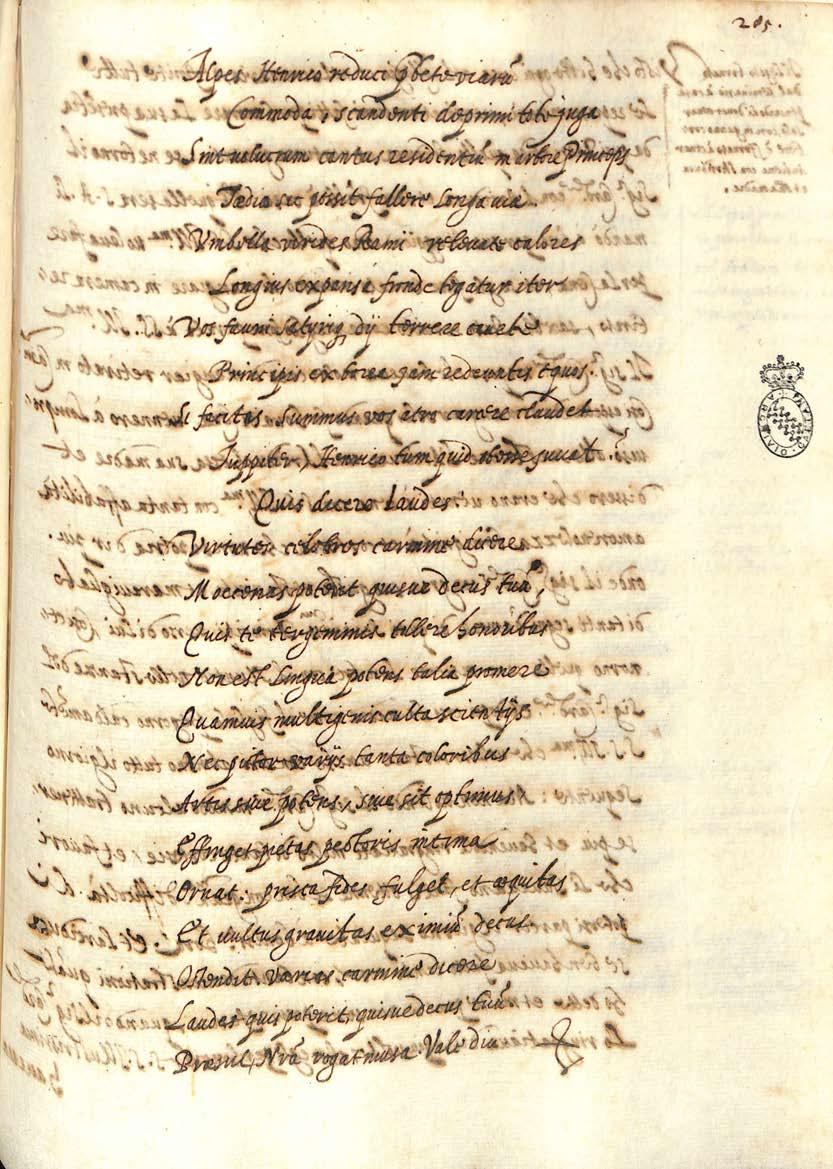 285.
Alpes Henrico reduci p̱bete viarũ
Commoda, scandenti deprimitote juga
Sint volucrum cantus residentiũ in arbore Princeps
Tædia sic possit fallere longa viæ.
Umbella virides Ramii relevate calores
Longius expansa fronde tegatur iter
Vos fauni Satyriq, dij terrere cavete
Principis ex borea jam redeuntis equos.
Si facitis summus vos atro carcere claudet
Juppiter, Henrico tum quid obesse juvat?
Quis dicere laudes
Virtutes celebres carmine dicere
Moecenas poterit quisve decus tuũ,
Quis te tergeminis tollere honoribus
Non est lingua potens talia promere
Quamvis multigenis culta scientijs
Nec pictor varijs tanta coloribus
Artis sive potens, sive sit optimus
Effinget pietas pectoris intima
Ornat: prisca fides fulget, et æquitas
Et vultus gravitas eximiũ decus
Ostendit varias carmine dicere
Laudes quis poterit, quisve decus tuũ
Præsul, Nr̃a rogat musa. Vale diu